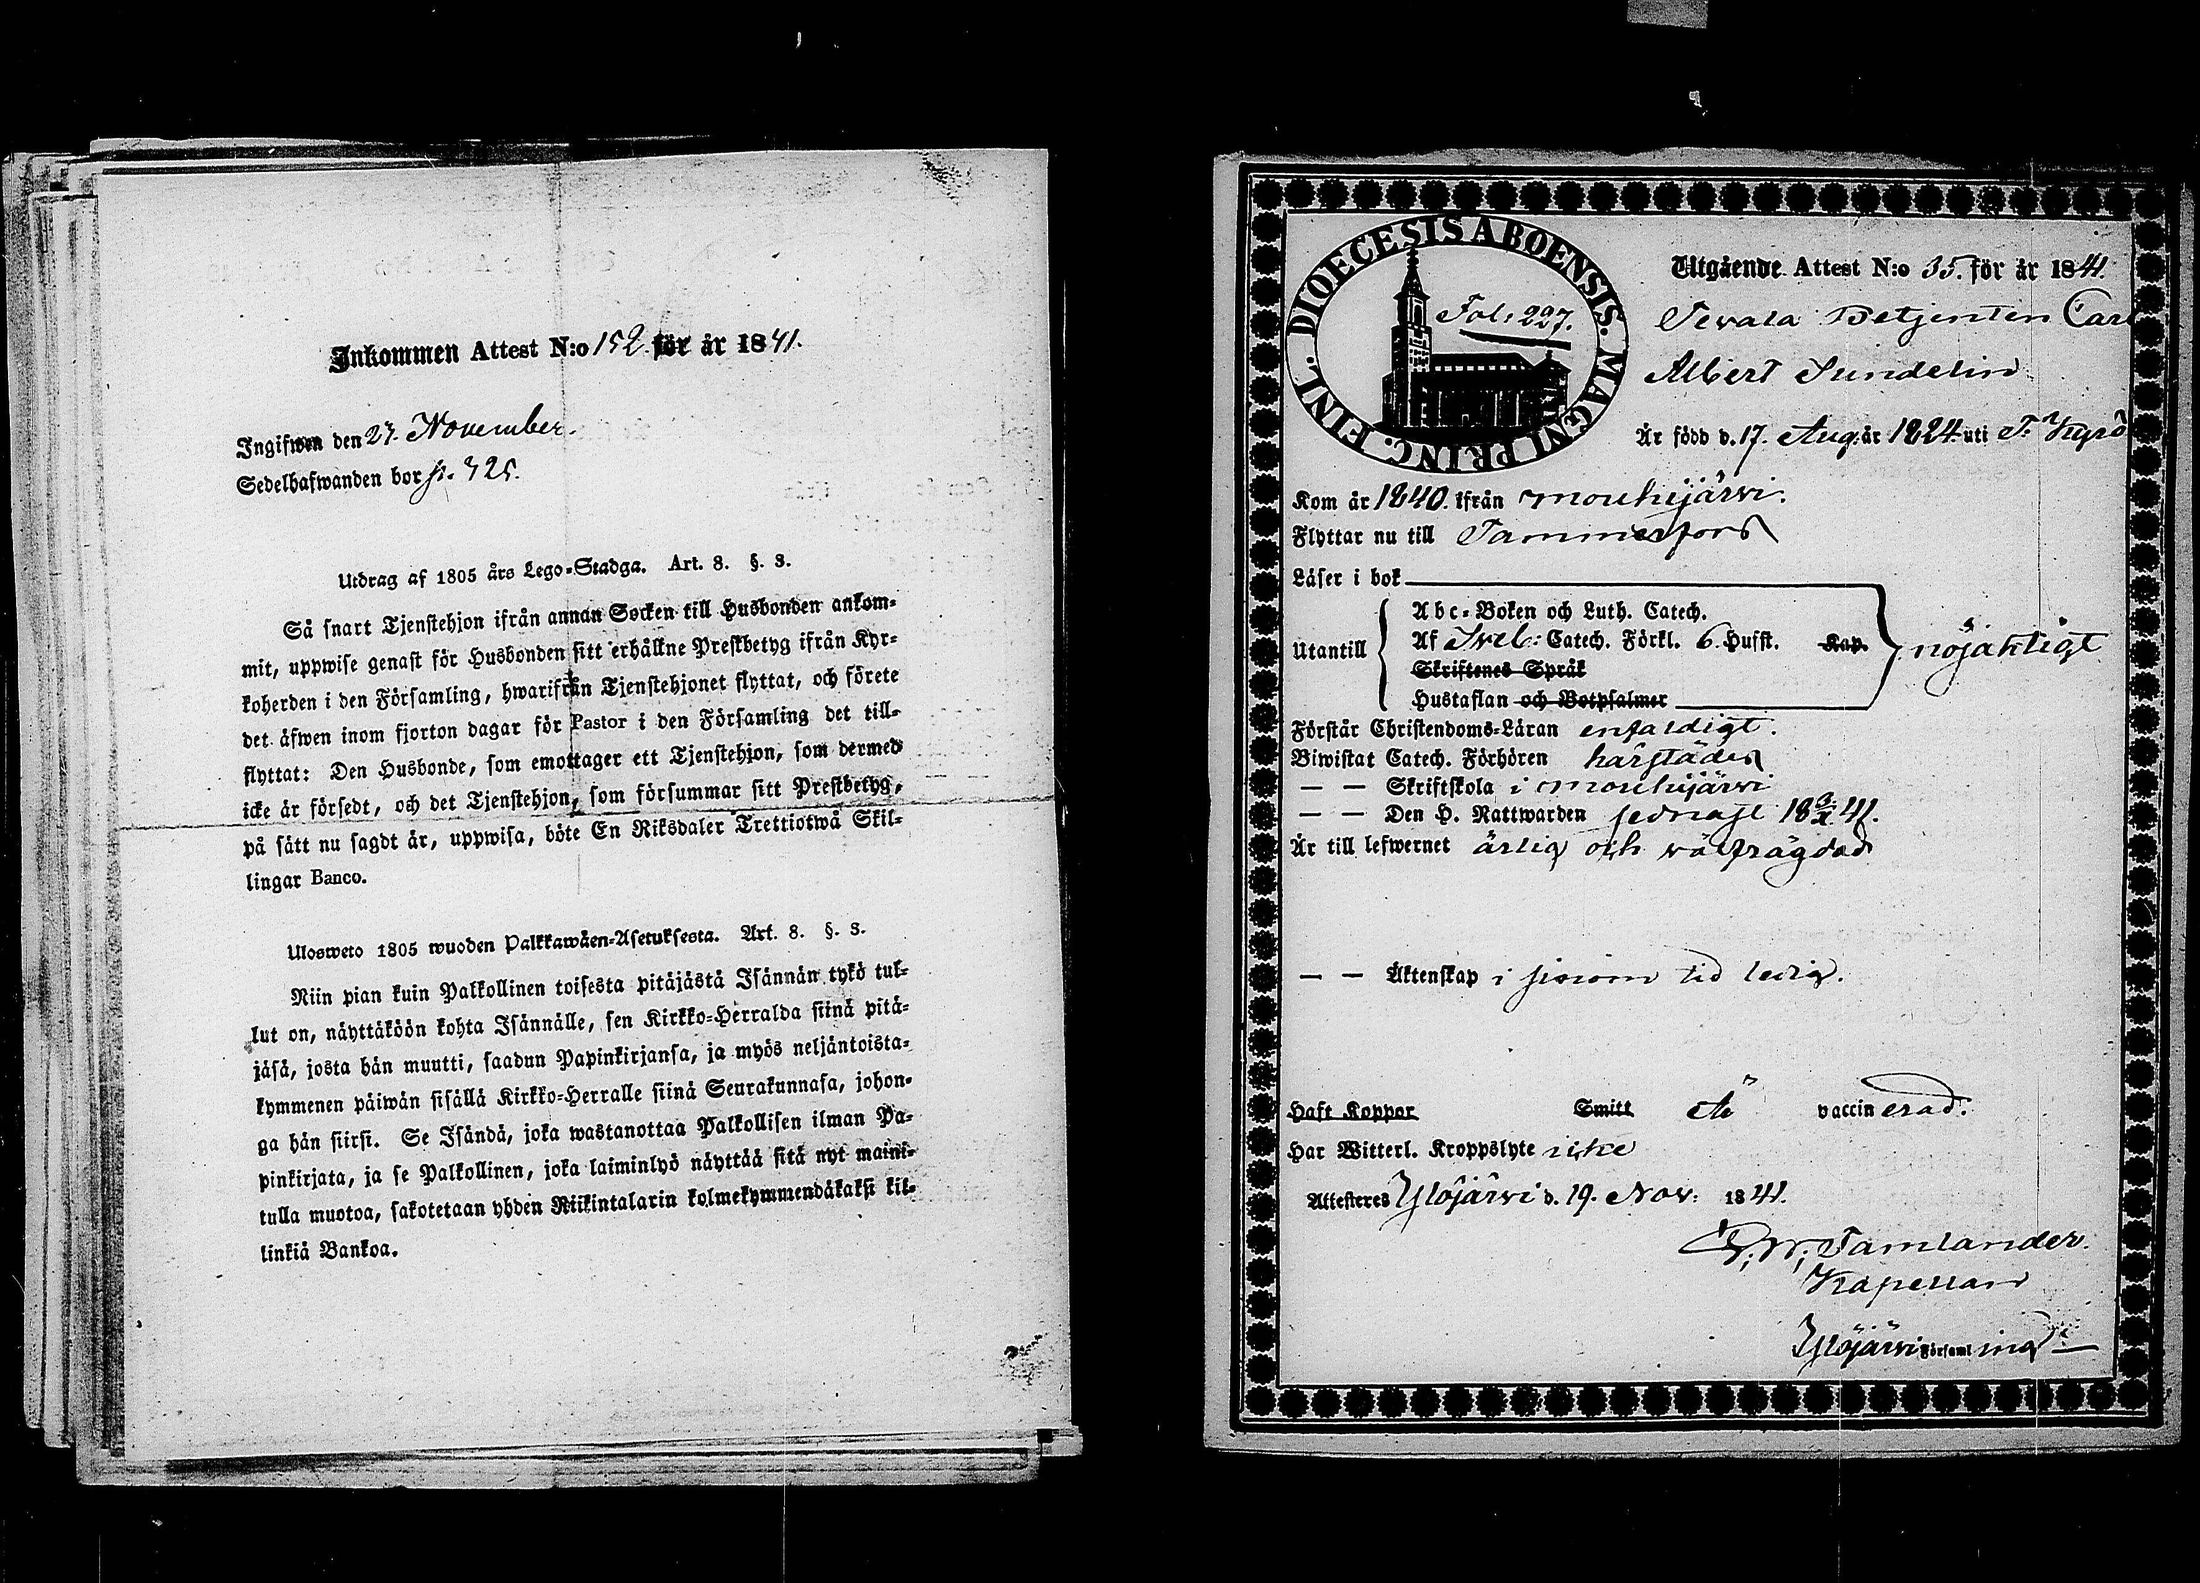 Inkommen Attest N:o 152 för år 1841.
Ingifwen den 27. November.
Sedelhafwanden bor p. 325.
Utdrag af 1805 års Lego-Stadga. Art. 8. §. 3.
Så snart Tjenstehjon ifrån annan Socken till Husbonden ankom-
mit, uppwise genast för Husbonden sitt erhållne Prestbetyg ifrån Kyr-
koherden i den Församling, hwarifrån Tjenstehjonet flyttat, och förete
det äfwen inom fjorton dagar för Pastor i den Församling det till-
flyttat: Den Husbonde, som emottager ett Tjenstehjon, som dermed
icke är försedt, och det Tjenstehjon, som försummar sitt Prestbetyg,
på sätt nu sagdt är, uppwisa, böte En Riksdaler Trettiotwå Skil-
lingar Banco.
Ulosweto 1805 wuoden Palkkawäen-Asetuksesta. Art. 8. §. 3.
Niin pian kuin Palkollinen toisesta pitäjästä Isännän tykö tul-
lut on, näyttäköön kohta Isännälle, sen Kirkko-Herralda siinä pitä-
jäsä, josta hän muutti, saadun Papinkirjansa, ja myös neljäntoista-
kymmenen päiwän sisällä Kirkko-Herralle siinä Seurakunnasa, johon-
ga hän siirsi. Se Isändä, joka wastanottaa Palkollisen ilman Pa-
pinkirjata, ja se Palkollinen, joka laiminlyö näyttää sitä nyt maini-
tulla muotoa, sakotetaan yhden Riikintalarin kolmekymmendäkaksi kil-
linkiä Bankoa.
DIOECESIS ABOENSIS. MAGNI PRINC. FINL.
Fol: 227.
Utgående Attest N:o 35. för år 1841.
Betjenten Carl
Albert Sundelin
Är född d. 17. Aug: år 1824 uti T. Kyrö
Kom år 1840. ifrån Mouhijärvi.
Flyttar nu till Tammerfors
Läser i bok
Utantill
Abc-Boken och Luth. Catech.
Af Sveb: Catech. Förkl. 6. Hufst. Kap.
Skriftenes Språk
Hustaflan och Botpsalmer
nöjaktigt
Förstår Christendoms-Läran enfaldigt.
Biwistat Catech. Förhören härstädes
— — Skriftskola i Mouhijärvi
— — Den H. Nattwarden sednast 18 3/X 41.
Är till lefwernet ärlig och wälfrägdad
— — Äktenskap i sinom tid ledig.
Haft Koppor Smitt Är vaccinerad.
Har Witterl. Kroppslyte icke
Attesteras Ylöjärvi d. 19. Nov: 1841.
Tamlander.
Kapellan
Ylöjärvi Församling